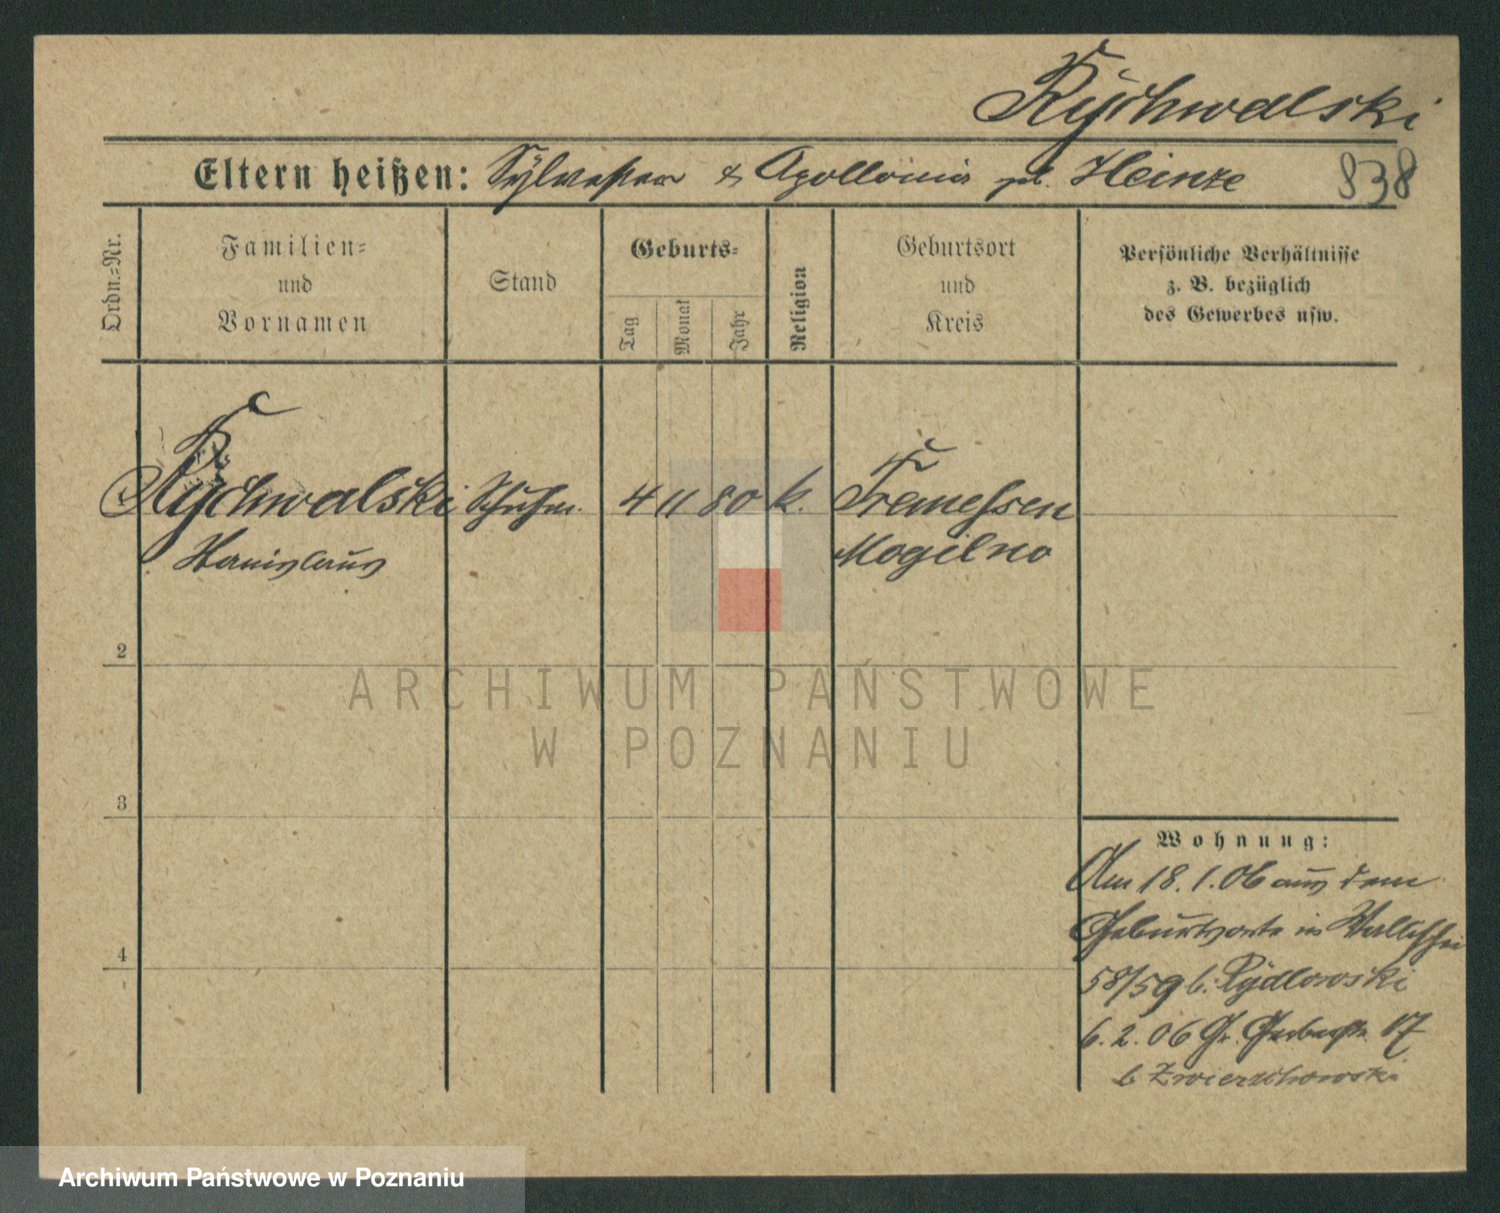 Rychwalski
Eltern heißen: Sylvester & Apollonia geb. Heinze 838
Ordn.=Nr.
Familien=
und
Vornamen
Stand
Geburts=
Tag
Monat
Jahr
Religion
Geburtsort
und
Kreis
Persönliche Verhältnisse
z. B. bezüglich
des Gewerbes usw.
Rychwalski Schuhm. 4 11 80 k. Tremessen
Stanislaus Mogilno
2
3
4
Wohnung:
Am 18.1.06 aus dem
Geburtsorte in Wallischei
58/59 b. Rydlewski
6.2.06 Gr. Gerberstr. 17
b Zwierzchowski
ARCHIWUM PAŃSTWOWE
W POZNANIU
Archiwum Państwowe w Poznaniu